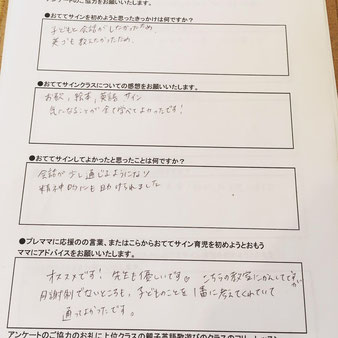 アンケートのご協力をお願いいたします。
●おててサインを初めようと思ったきっかけは何ですか？
子どもと会話がしたかったため
英ごも教えたかったため
●おててサインクラスについての感想をお願いいたします。
お歌、絵本、英語 サイン
気になることが全て学べてよかったです！
●おててサインしてよかったと思ったことは何ですか？
会話が少し通じるようになり
精神的にも助けられました
●プレママに応援のの言葉、またはこらからおててサイン育児を初めようとおもう
ママにアドバイスをお願いいたします。
オススメです！ 先生も優しいです。 こちらの教室にかんしてですが
月謝制でないところも、子どものことを1番に考えてくれていて
通ってよかったです。
アンケートのご協力のお礼に上位クラスの親子英語歌遊びのクラスの